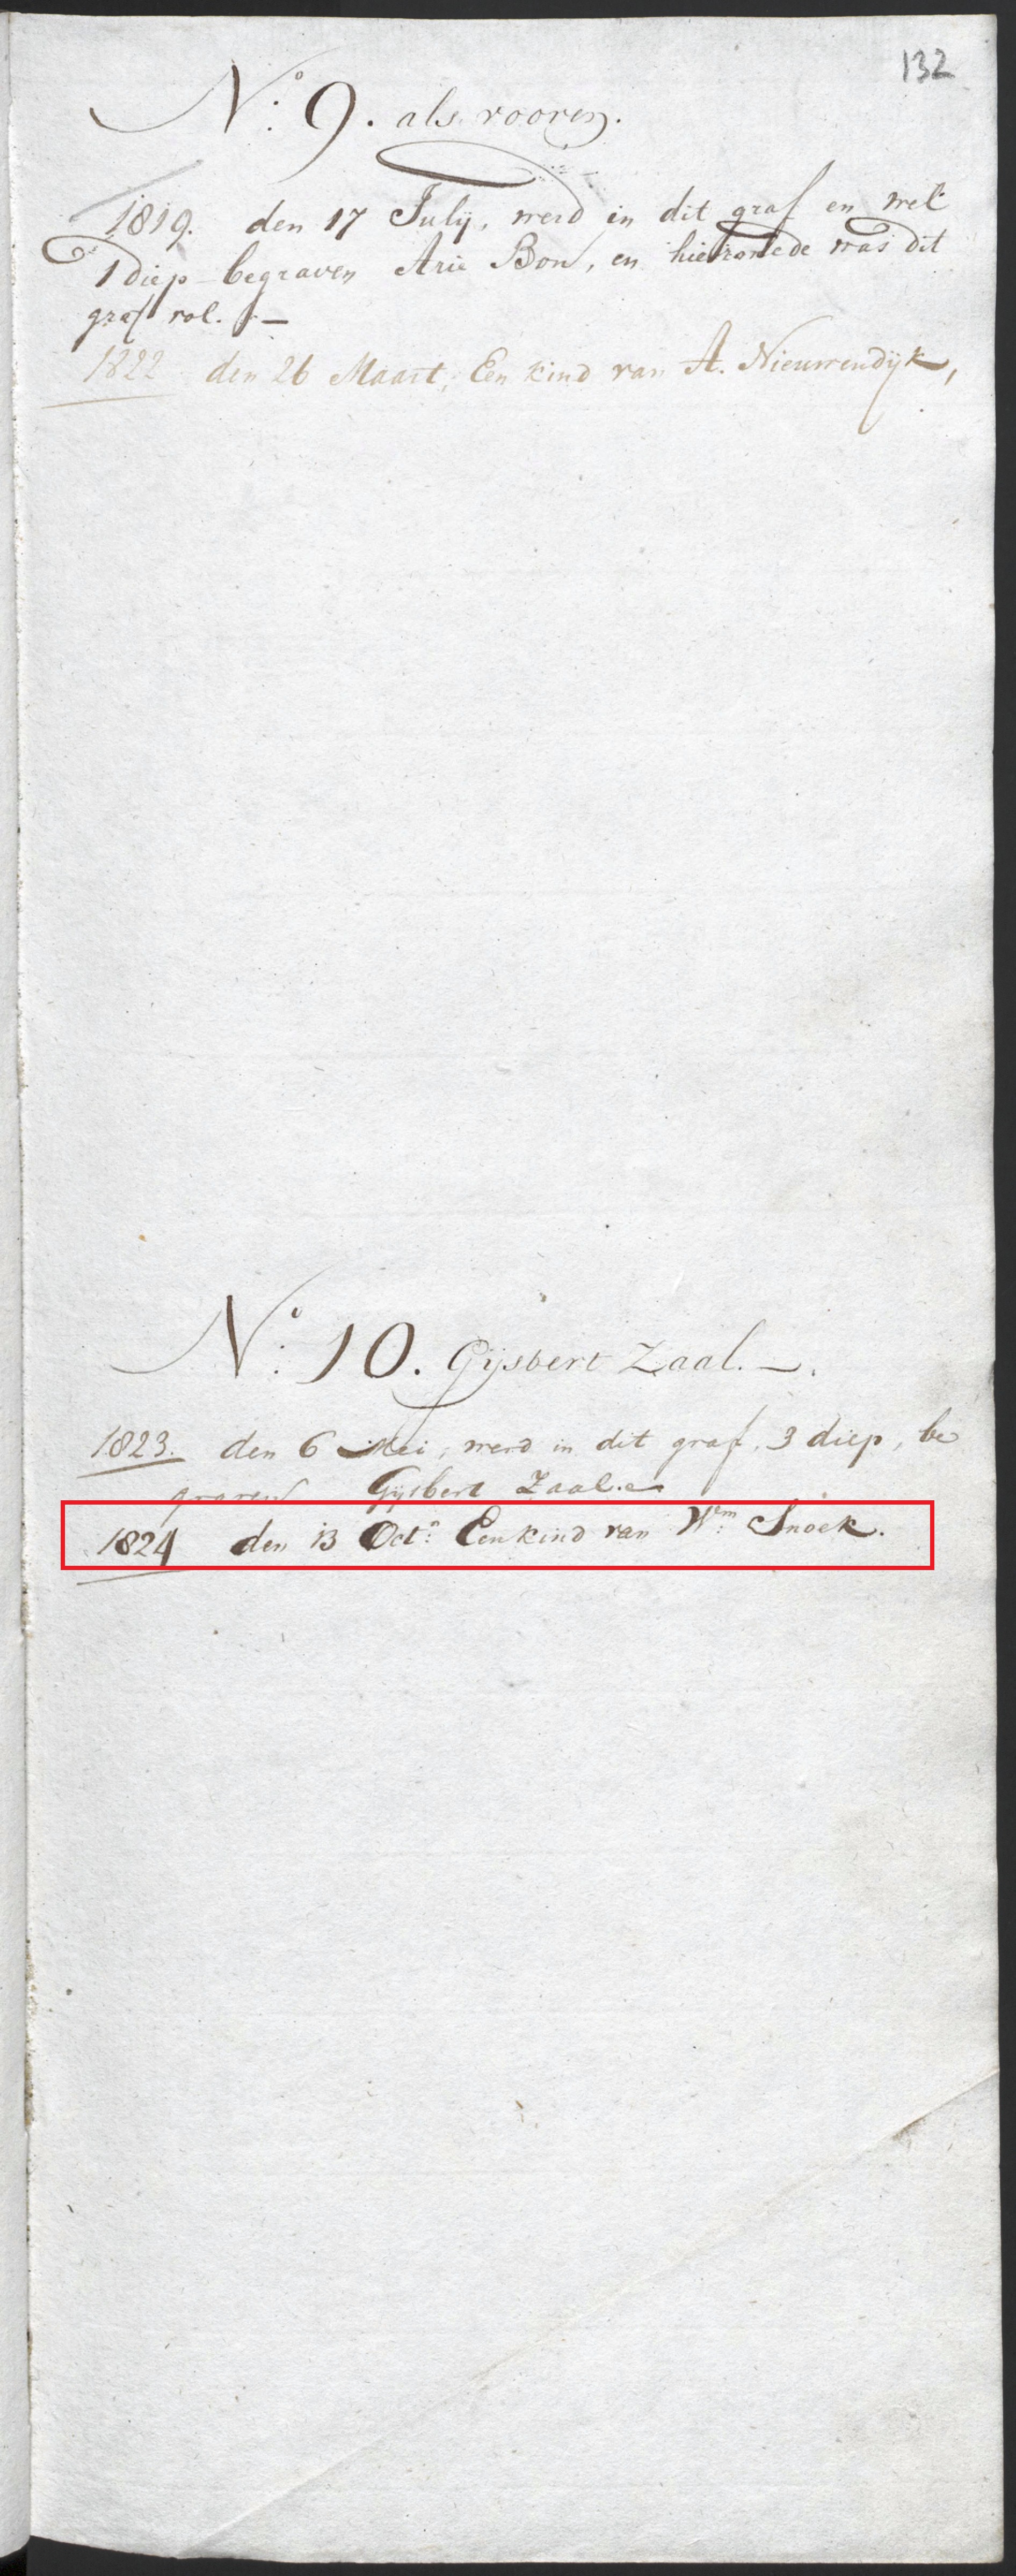 132
N.º 9. als vooren.
1819. den 17 Julij, werd in dit graf en wel
1 diep begraven Arie Bon, en hiermede was dit
graf vol. —
1822 den 26 Maart, Een kind van A. Nieuwendijk,
N.º 10. Gijsbert Zaal. —.
1823. den 6 Mei, werd in dit graf, 3 diep, be
graven Gijsbert Zaal.
1824 den 13 Oct.r Een kind van W.m Snoek.